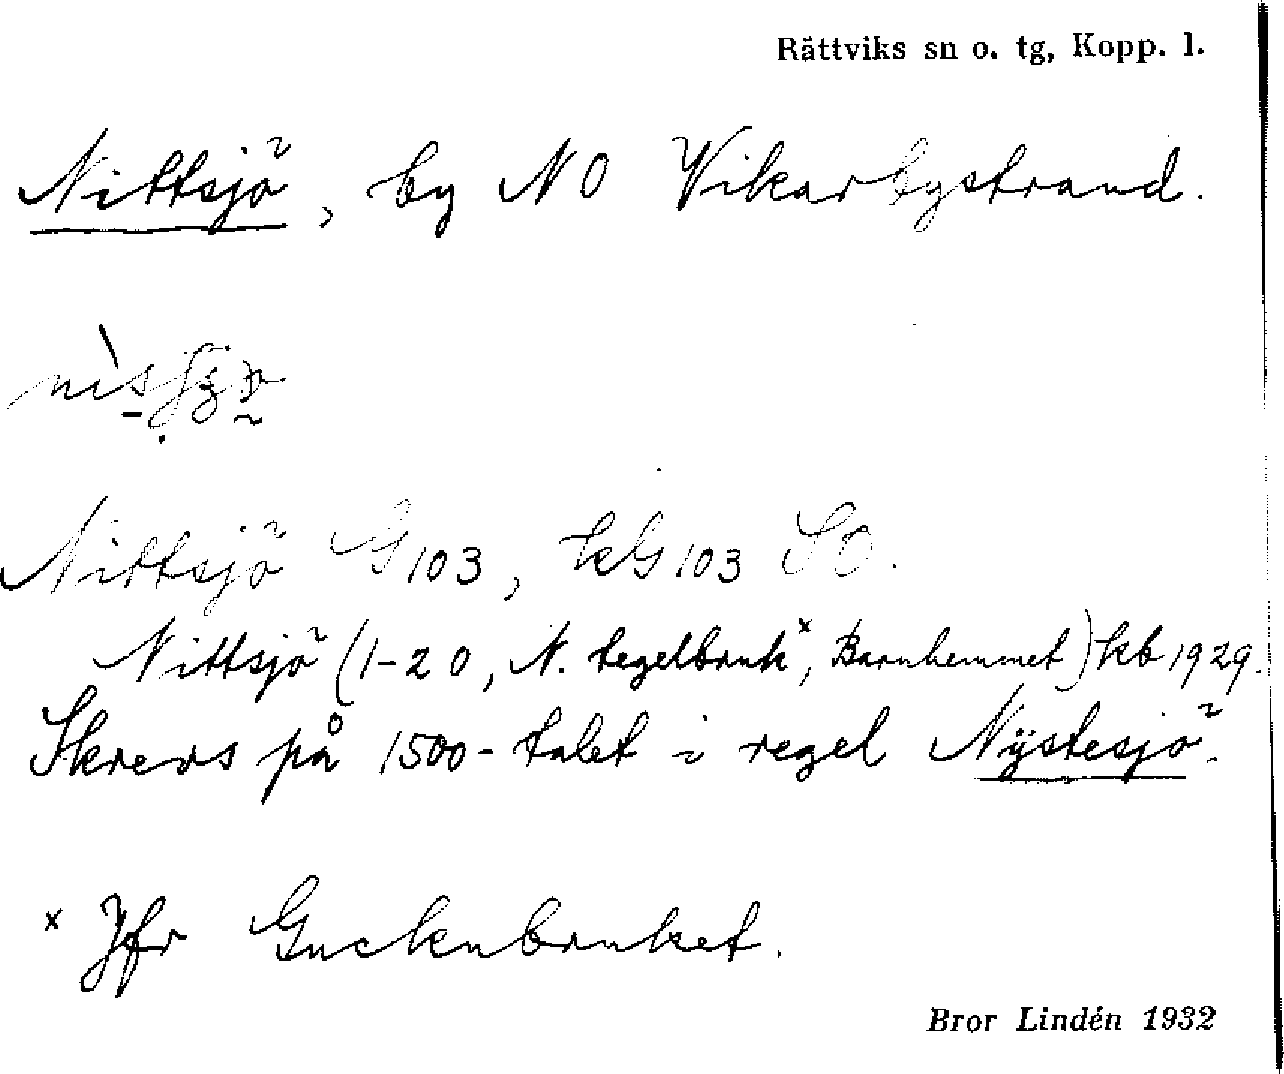 Rättviks sn o. tg, Kopp. l.
Nittsjö, by NO Vikarbystrand.
Nittsjö G103, kG103 SO.
Nittsjö (1-20, N. tegelbruk x, Barnhemmet) kb 1929.
Skrevs på 1500-talet i regel Nÿstesjö.
x Jfr Guckubruket.
Bror Lindén 1932